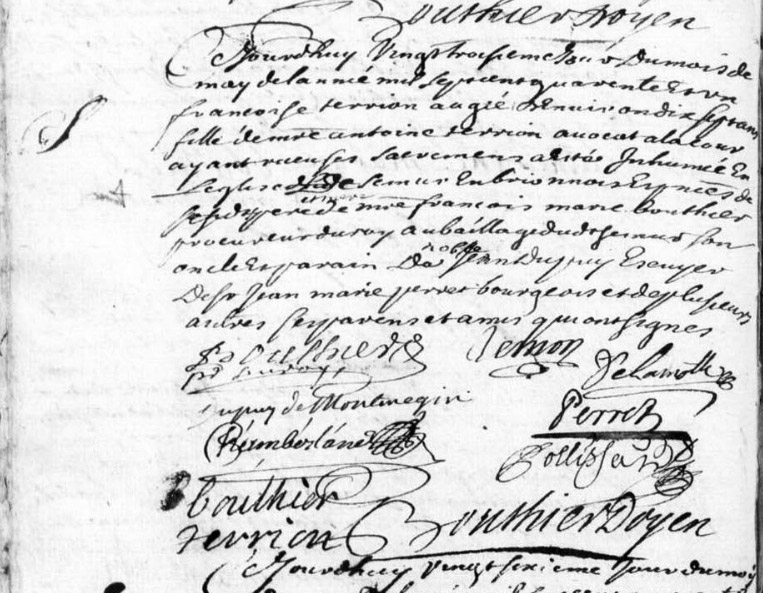 Bouthier Doyen
Jourdhuy Vingt troisieme Jour du mois de
may de lannée mil sept cent quarente et un
francoise terrion augée denuiron dix sept ans
fille de mre antoine terrion auocat a la cour
ayant receu ses sacremens a été Inhumée En
leglise de semur En brionnois En pnces de
ses dits pere de mre francois marie bouthier
procureur du roy au bailliage dudt semur son
oncle Et parain De noble Jean Dupuy Escuyer
De sr Jean marie perret bourgeois et de plusieurs
autres ses parens et amis qui ont signes
Bouthier terrion
pr du roy Delamotte
Dupuy de Perret
Rambeslane
bouthier
terrion Bouthier Doyen
Jourdhuy vingt sixieme Jour du moy